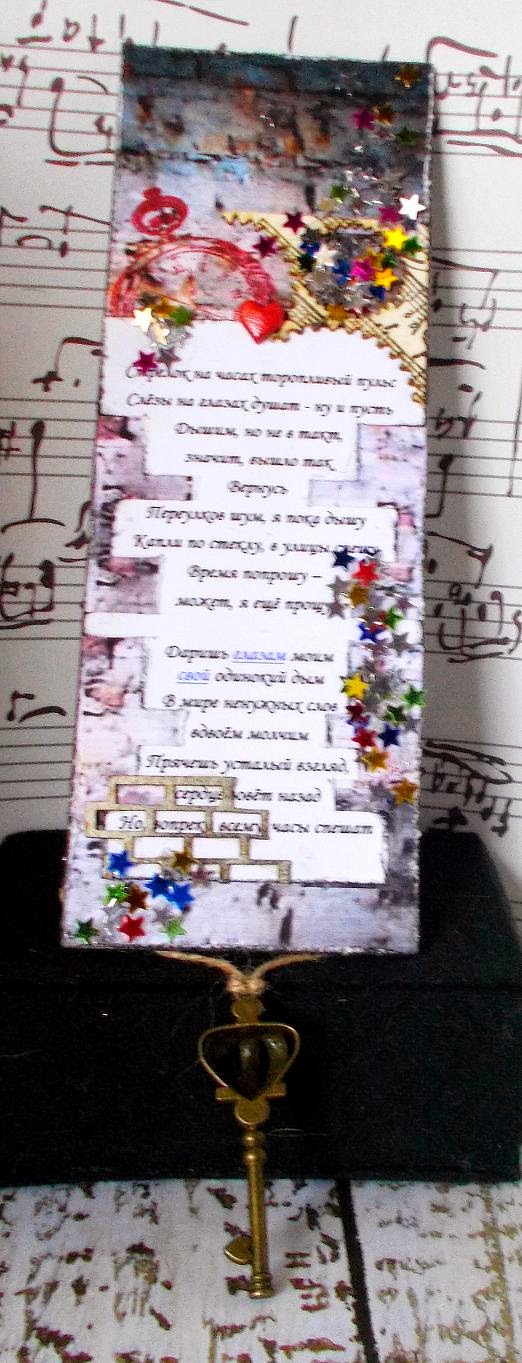 Стрелок на часах торопливый пульс
Слёзы на глазах душат - ну и пусть
Дышим, но не в такт,
значит, вышло так
Вернусь
Переулков шум, я пока дышу
Капли по стеклу, в улицы спешу
Время попрошу –
может, я ещё прощу
Даришь глазам моим
свой одинокий дым
В мире ненужных слов
вдвоём молчим
Прячешь усталый взгляд,
сердце зовёт назад
Но, вопреки всему, часы спешат